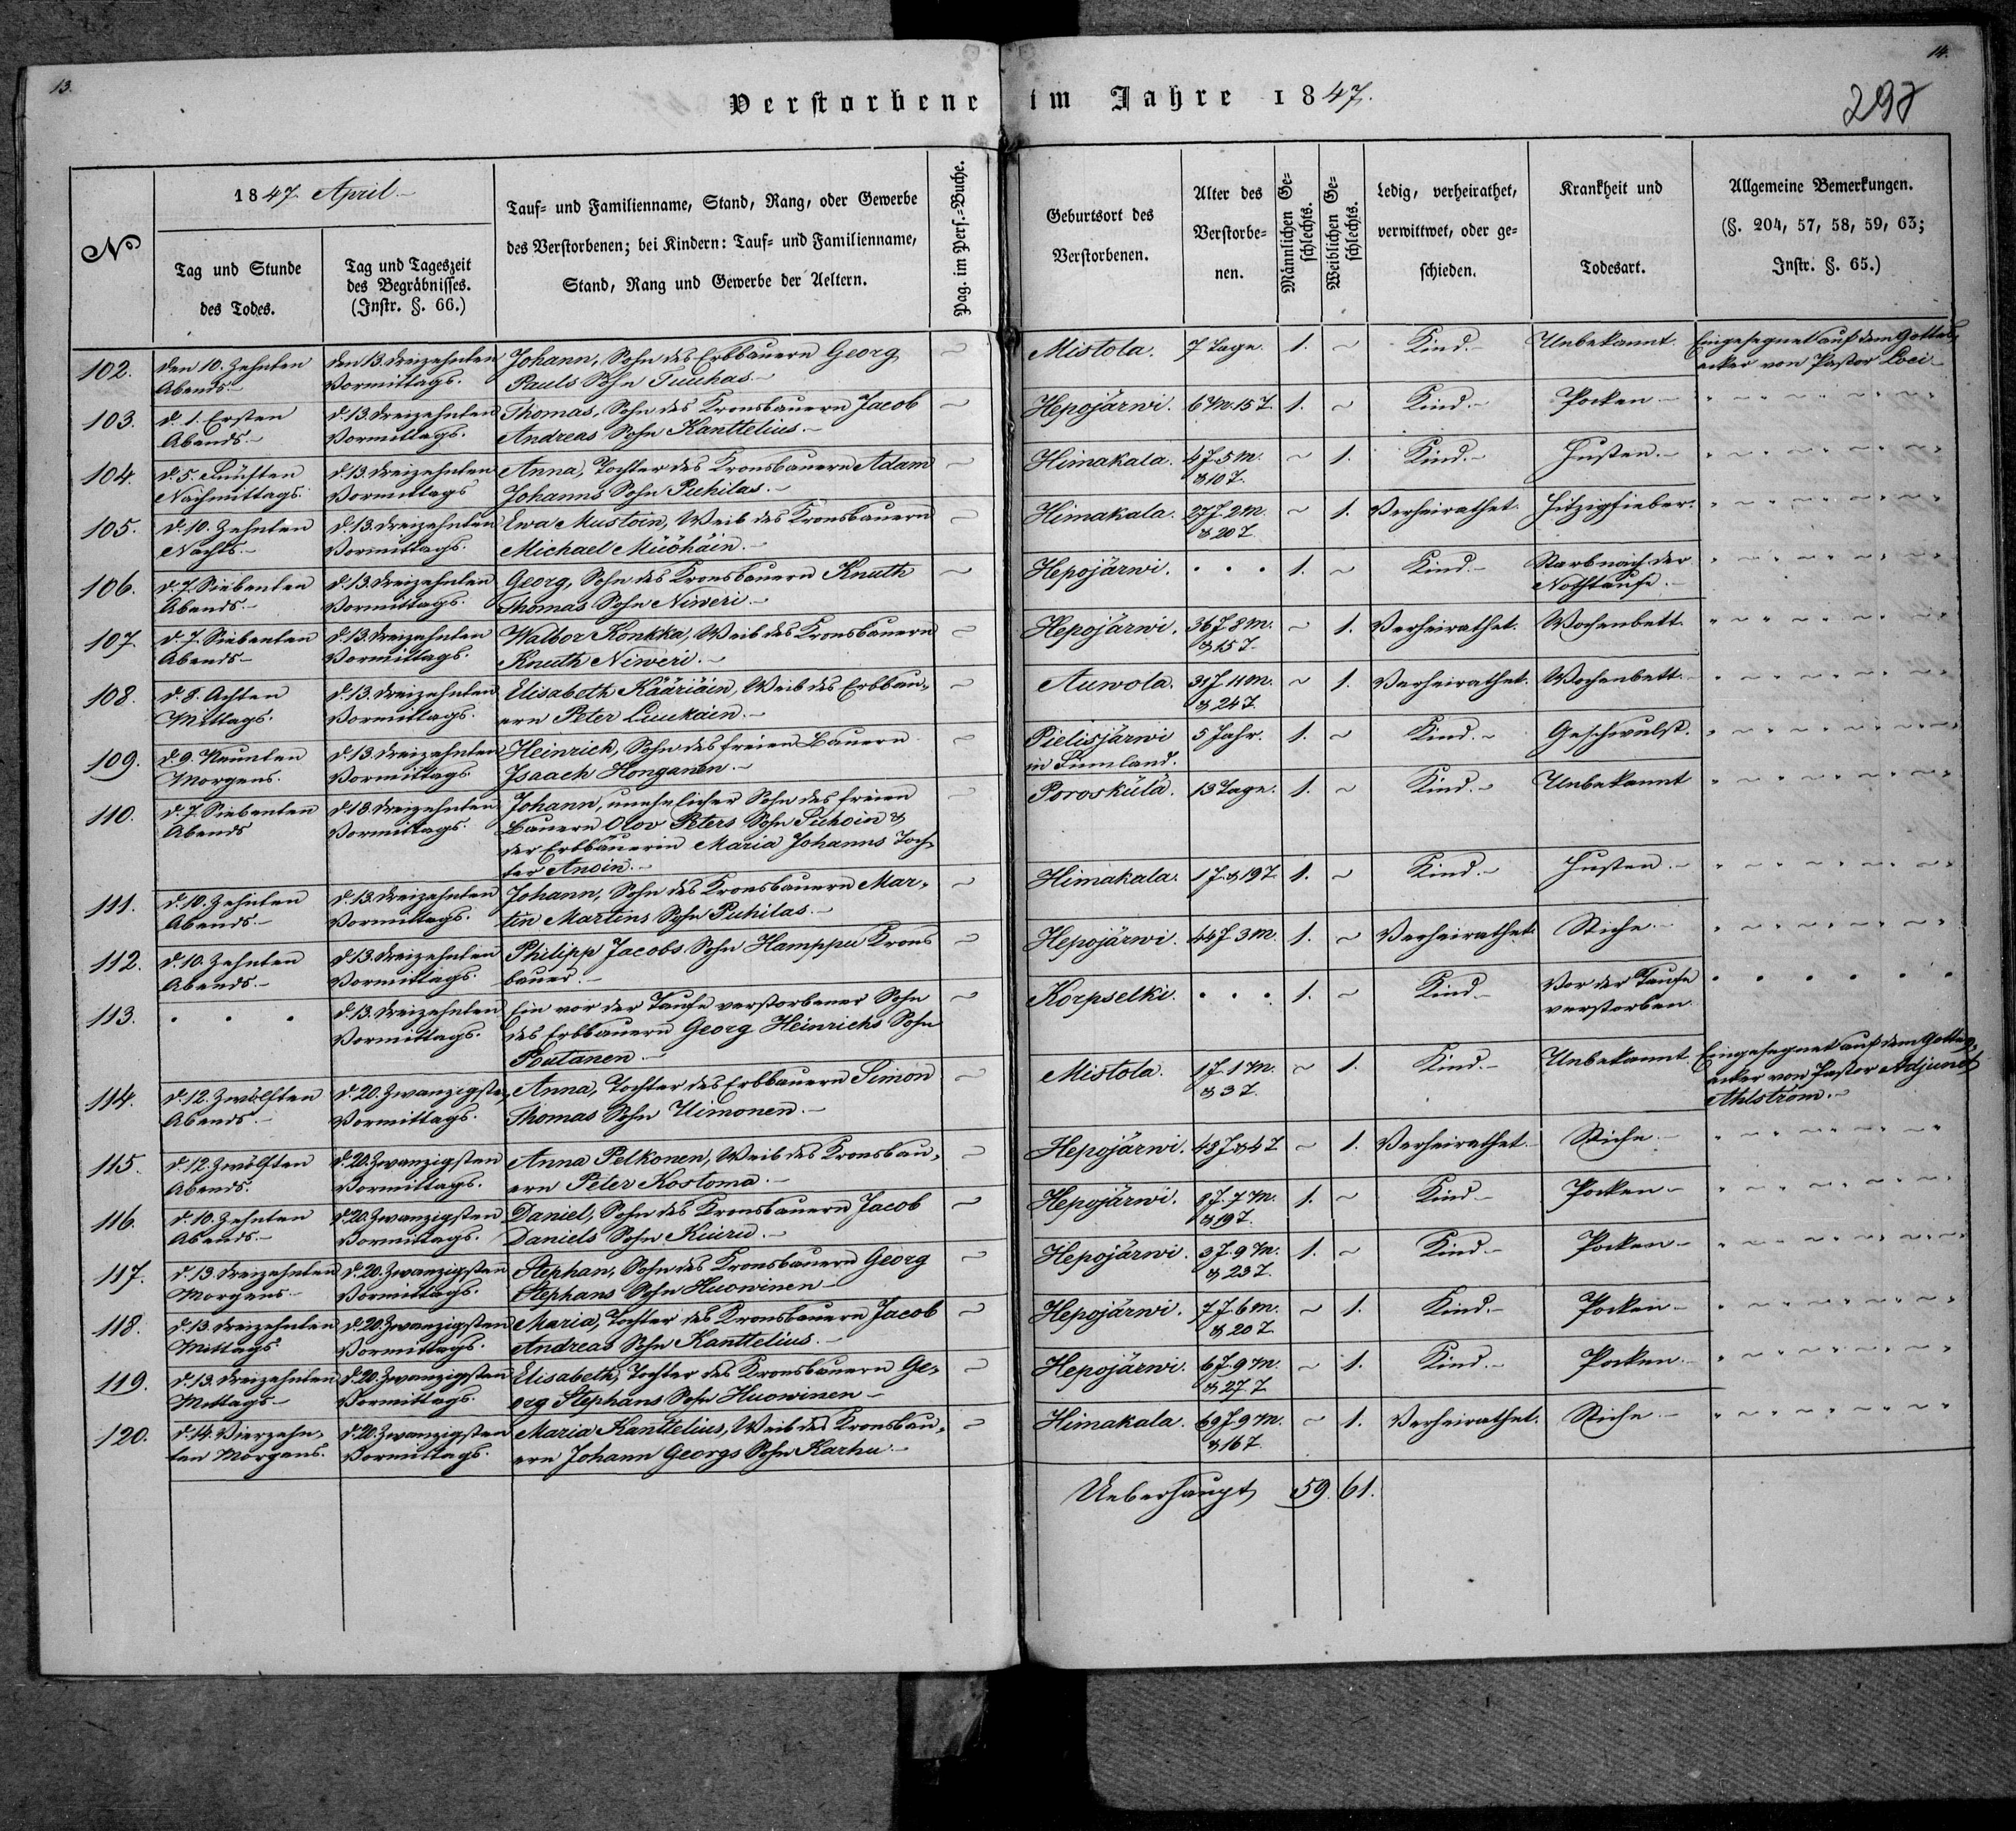 13.
14.
Verstorbene im Jahre 1847.
297
No
1847 April
Tag und Stunde
des Todes.
Tag und Tageszeit
des Begräbnisses.
(Instr. §. 66.)
Tauf= und Familienname, Stand, Rang, oder Gewerbe
des Verstorbenen; bei Kindern: Tauf= und Familienname,
Stand, Rang und Gewerbe der Aeltern.
Pag. im Pers.=Buche.
Geburtsort des
Verstorbenen.
Alter des
Verstorbe=
nen.
Männlichen Ge=
schlechts.
Weiblichen Ge=
schlechts.
Ledig, verheirathet,
verwittwet, oder ge=
schieden.
Krankheit und
Todesart.
Allgemeine Bemerkungen.
(§. 204, 57, 58, 59, 63;
Instr. §. 65.)
102. den 10. Zehnten den 13. dreizehnten Johann, Sohn des Erbbauern Georg ~ Mistola. 7 Tage. 1. ~ Kind. Unbekannt. Eingesegnet auf dem Gottes,
Abends. Vormittags. Pauls Sohn Tuuhas. acker von Pastor Loci
103. d. 1. Ersten d. 13. dreizehnten Thomas, Sohn des Kronsbauern Jacob ~ Hepojärwi. 6 M. 15 T. 1. ~ Kind. Pocken
Abends. Vormittags. Andreas Sohn Kanttelius.
104. d. 5. Fünften d. 13. dreizehnten Anna, Tochter des Kronsbauern Adam ~ Himakala. 4 J. 5 M. ~ 1. Kind. Husten.
Nachmittags. Vormittags Johanns Sohn Puhilas. & 10 T.
105. d. 10. Zehnten d. 13. dreizehnten Ewa Mustoin, Weib des Kronsbauern ~ Himakala. 27 J. 2 M. ~ 1. Verheirathet. Hitzigfieber.
Nachts. Vormittags. Michael Müöhäin. & 20 T.
106. d. 7. Siebenten d. 13. dreizehnten Georg, Sohn des Kronsbauern Knuth ~ Hepojärwi. . . . 1. ~ Kind. Starb nach der
Abends. Vormittags. Thomas Sohn Niweri. Nothtaufe.
107. d. 7. Siebenten d. 13. dreizehnten Walbor Konkka, Weib des Kronsbauern ~ Hepojärwi. 36 J. 8 M. ~ 1. Verheirathet. Wochenbett.
Abends Vormittags. Knuth Niweri. & 15 T.
108. d. 8. Achten d. 13. dreizehnten Elisabeth Kääriäin, Weib des Erbbau, ~ Auwola. 31 J. 11 M. ~ 1. Verheirathet. Wochenbett.
Mittags. Vormittags. ern Peter Luukäin. & 24 T.
109. d. 9. Neunten d. 13. dreizehnten Heinrich, Sohn des freien Bauern ~ Pielisjärwi 5 Jahr. 1. ~ Kind. Geschwulst.
Morgens. Vormittags Isaach Honganen. in Finnland.
110. d. 7. Siebenten d. 13. dreizehnten Johann, unehelicher Sohn des freien ~ Poroskülä. 13 Tage. 1. ~ Kind. Unbekannt
Abends Vormittags. Bauern Olov Peters Sohn Suhoin &
der Erbbäuerin Maria Johanns Toch,
ter Anoin.
111. d. 10. Zehnten d. 13. dreizehnten Johann, Sohn des Kronsbauern Mar, ~ Himakala. 1 J. & 19 T. 1. ~ Kind. Husten.
Abends. Vormittags. tin Martins Sohn Puhilas.
112. d. 10. Zehnten d. 13. dreizehnten Philipp Jacobs Sohn Hamppu Krons ~ Hepojärwi. 44 J. 3 M. 1. ~ Verheirathet. Stiche.
Abends. Vormittags. bauer.
113. . . . d. 13. dreizehnten Ein vor der Taufe verstorbener Sohn ~ Korpselki. . . . 1. ~ Kind. Vor der Taufe
Vormittags. des Erbbauern Georg Heinrichs Sohn verstorben.
Poutanen.
114. d. 12. Zwölften d. 20. Zwanzigsten Anna, Tochter des Erbbauern Simon ~ Mistola. 1 J. 1 M. ~ 1. Kind. Unbekannt. Eingesegnet auf dem Gottes,
Abends. Vormittags. Thomas Sohn Uimonen. & 3 T. acker von Pastor Adjunct
Ahlström.
115. d. 12. Zwölften d. 20. Zwanzigsten Anna Pelkonen, Weib des Kronsbau, ~ Hepojärwi. 48 J. & 4 T ~ 1. Verheirathet. Stiche.
Abends. Vormittags. ern Peter Kostoma.
116. d. 10. Zehnten d. 20. Zwanzigsten Daniel, Sohn des Kronsbauern Jacob ~ Hepojärwi. 8 J. 7 M. 1. ~ Kind Pocken
Abends. Vormittags. Daniels Sohn Kiuru. & 19 T.
117. d. 13. dreizehnten d. 20. Zwanzigsten Stephan, Sohn des Kronsbauern Georg ~ Hepojärwi. 3 J. 9 M. 1. ~ Kind. Pocken
Morgens Vormittags. Stephans Sohn Huowinen & 23 T.
118. d. 13. dreizehnten d. 20. Zwanzigsten Maria, Tochter des Kronsbauern Jacob ~ Hepojärwi. 7 J. 6 M. ~ 1. Kind. Pocken
Mittags. Vormittags. Andreas Sohn Kanttelius. & 20 T.
119. d. 13. dreizehnten d. 20. Zwanzigsten Elisabeth, Tochter des Kronsbauern Ge, ~ Hepojärwi. 6 J. 9 M. ~ 1. Kind. Pocken.
Mittags Vormittags. org Stephans Sohn Huowinen & 27 T
120. d. 14. Vierzehn, d. 20. Zwanzigsten Maria Kanttelius, Weib des Kronsbau, ~ Himakala. 69 J. 9 M. ~ 1. Verheirathet. Stiche.
ten Morgens. Vormittags. ern Johann Georgs Sohn Karhu. & 16 T.
Ueberhaupt 59. 61.